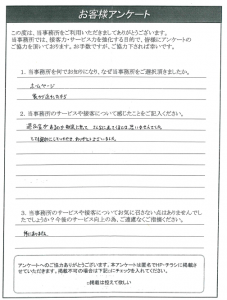 お客様アンケート
この度は、当事務所をご利用いただきましてありがとうございます。
当事務所では、接客力・サービス力を強化する目的で、皆様にアンケートの
ご協力を頂いております。お手数ですが、ご協力下されば幸いです。
1．当事務所を何でお知りになり、なぜ当事務所をご選択頂きましたか。
ホームページ
2．当事務所のサービスや接客について感じたことをご記入ください。
3．当事務所のサービスや接客についてお気に召さない点はありませんでし
たでしょうか？今後のサービス向上の為、ご遠慮なくご指摘ください。
特にありません
アンケートへのご協力ありがとうございます。本アンケートは匿名でHP・チラシに掲載さ
せていただきます。掲載不可の場合は下記にチェックを入れてください。
□掲載は控えて欲しい